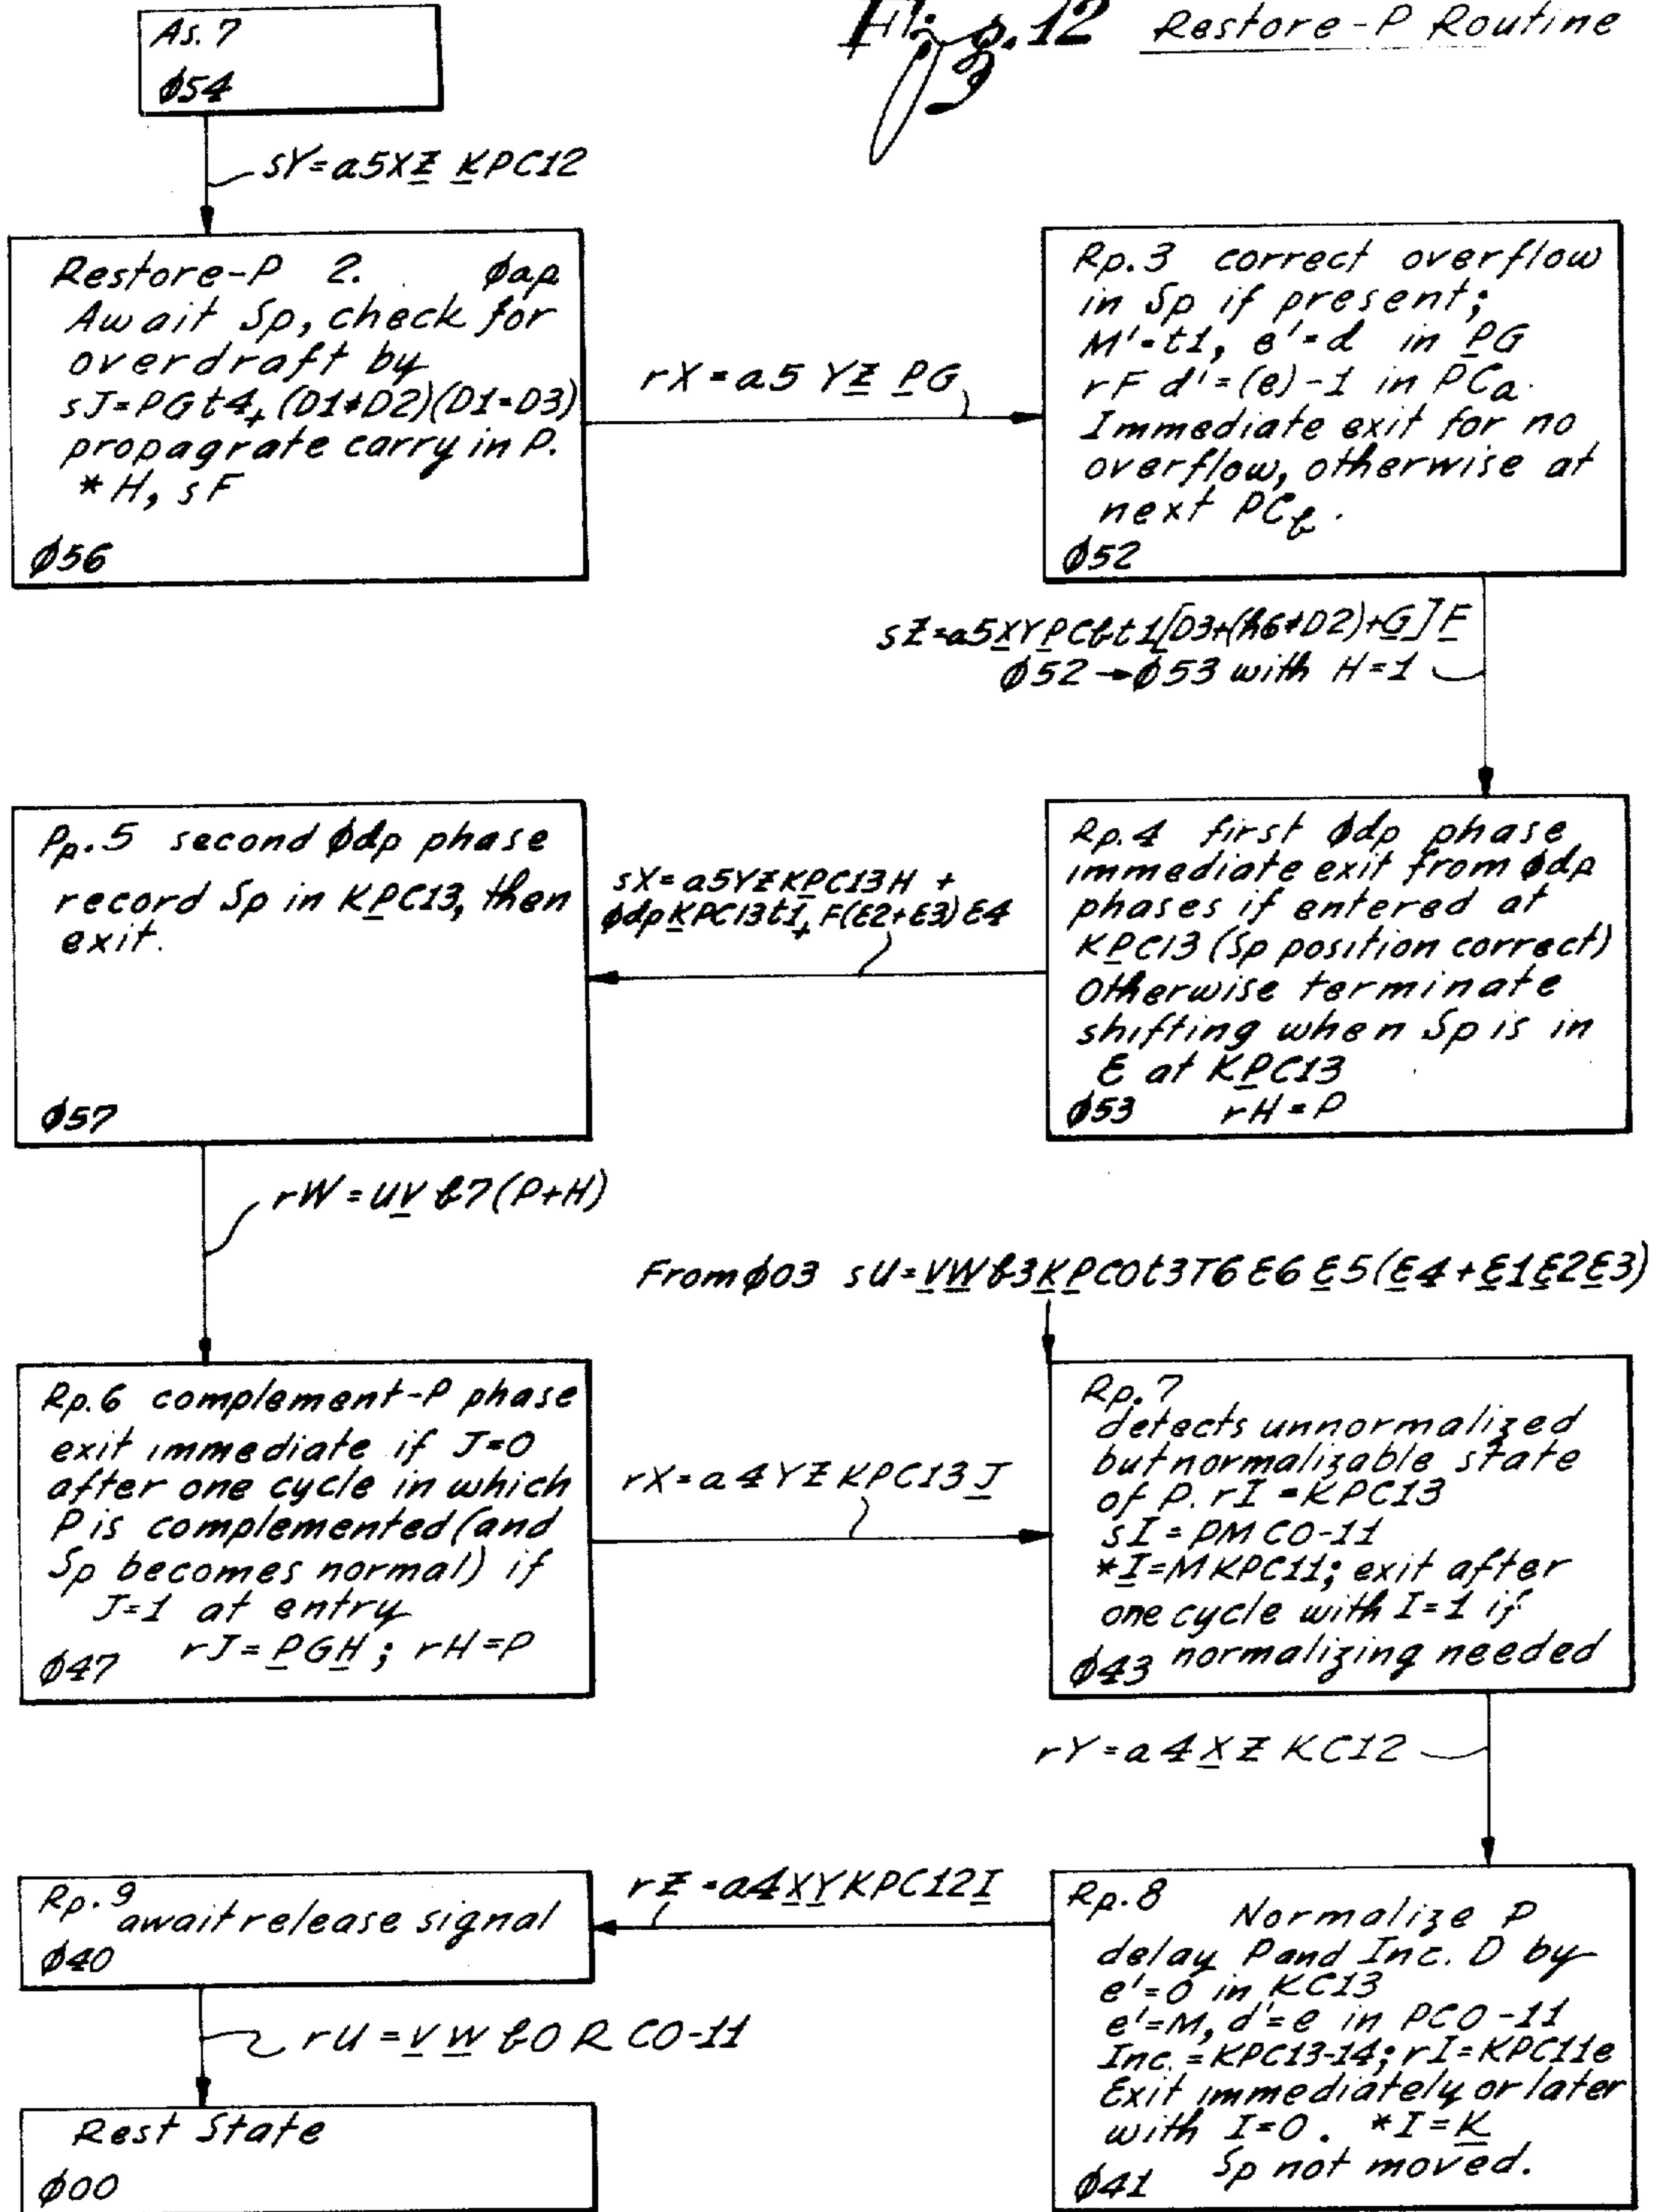 Fig. 12 Restore-P Routine
As.7
ϕ54
sY=a5XZ̲ K̲PC12
Restore-P 2. ϕap
Await Sp, check for
overdraft by
sJ=PGt4, (D1≠D2)(D1=D3)
propagrate carry in P.
*H, sF
ϕ56
rX=a5 YZ̲ P̲G
Rp.3 correct overflow
in Sp if present;
M'=t1, e'=d in P̲G
rF d'=(e)-1 in PCa.
Immediate exit for no
overflow, otherwise at
next PCb.
ϕ52
sZ=a5X̲YP̲Cbt1[D3+(h6≠D2)+G̲]F̲
ϕ52→ϕ53 with H=1
Rp.4 first ϕdp phase
immediate exit from ϕdp
phases if entered at
KP̲C13 (Sp position correct)
Otherwise terminate
shifting when Sp is in
E at KP̲C13
ϕ53 rH=P
sX=a5YZKP̲C13H +
ϕdpK̲PC13t1, F(E2+E3)E4
Pp.5 second ϕdp phase
record Sp in KP̲C13, then
exit.
ϕ57
rW=UV̲ b7(P+H)
From ϕ03 sU=V̲W̲b3K̲P̲C0t3T6E6 E̲5(E̲4+E̲1E̲2E̲3)
Rp.6 complement-P phase
exit immediate if J=0
after one cycle in which
P is complemented (and
Sp becomes normal) if
J=1 at entry
rJ=P̲GH̲; rH=P
ϕ47
rX=a4YZKPC13J̲
Rp.7
detects unnormalized
but normalizable state
of P. rI=KPC13
sI=PMC0-11
*I̲=MKPC11; exit after
one cycle with I=1 if
ϕ43 normalizing needed
rY=a4X̲Z KC12
Rp.8 Normalize P
delay P and Inc. D by
e'=0 in KC13
e'=M, d'=e in PC0-11
Inc.=KPC13-14; rI=KPC11e
Exit immediately or later
with I=0. *I=K̲
Sp not moved.
ϕ41
rZ=a4X̲Y̲KPC12I̲
Rp.9
await release signal
ϕ40
rU=V̲ W̲ b0 R C0-11
Rest State
ϕ00